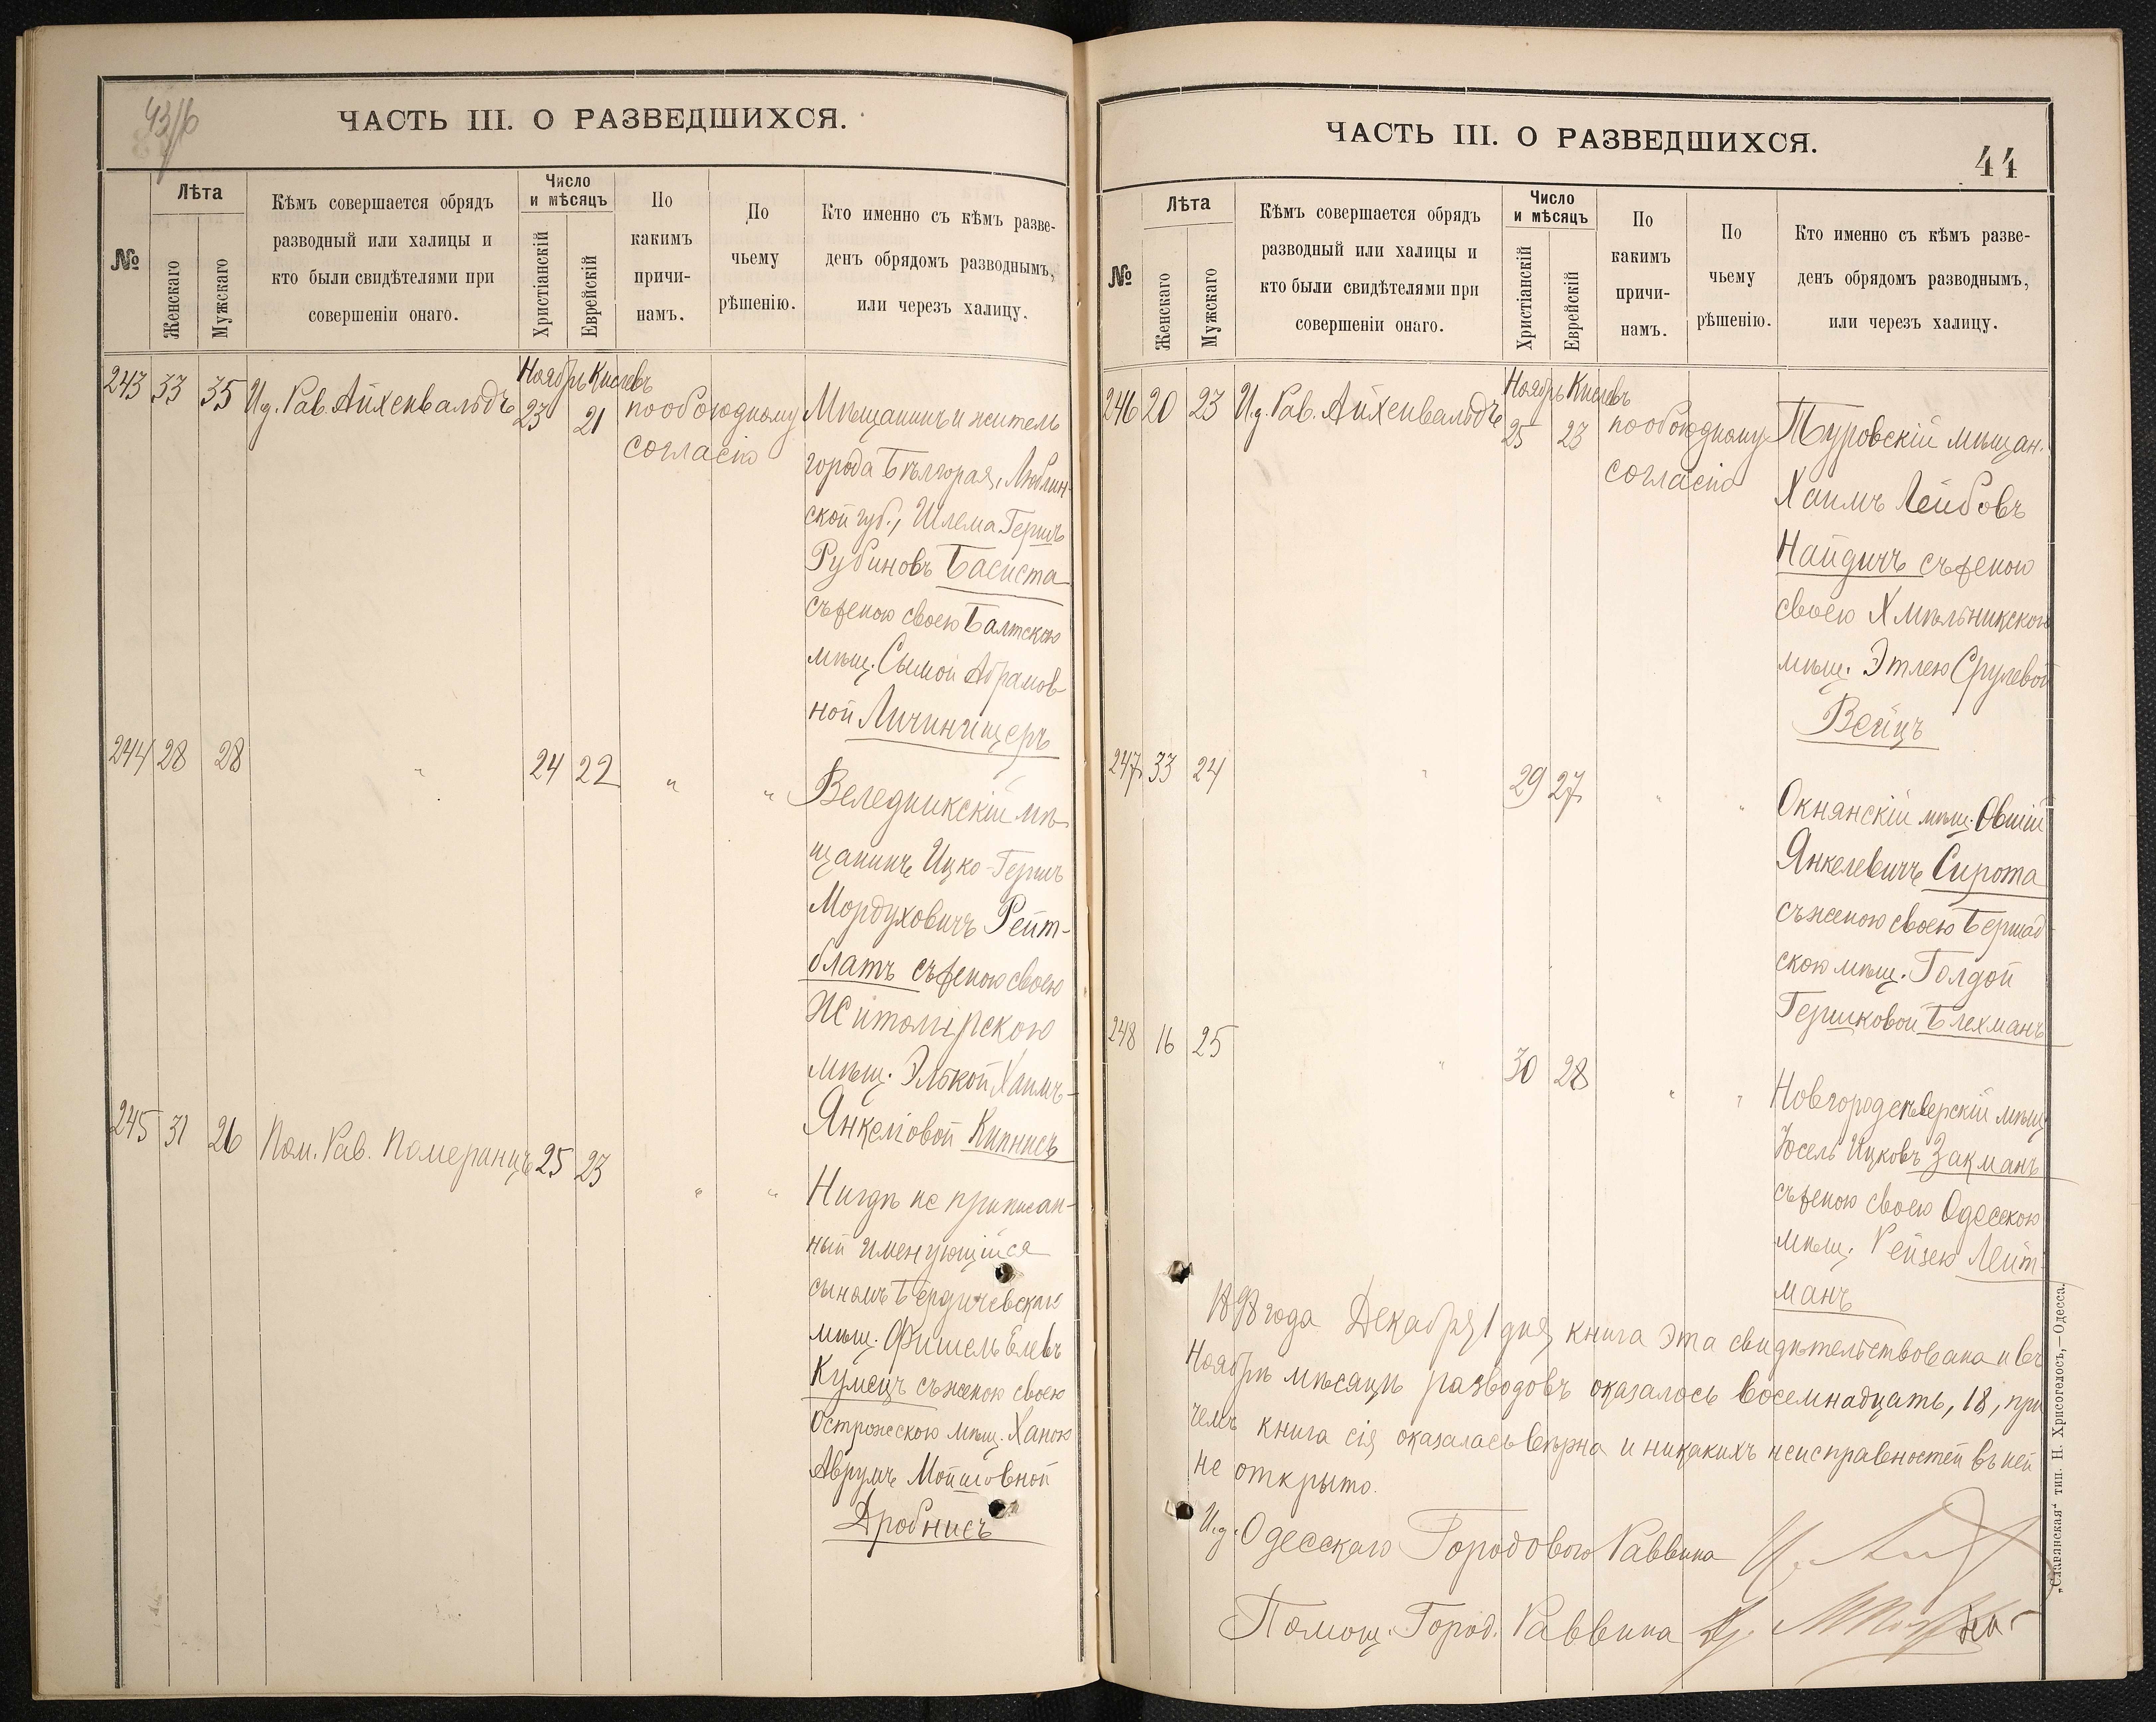 43/6
ЧАСТЬ III. О РАЗВЕДШИХСЯ.
№
Лѣта
Женскаго
Мужскаго
Кѣмъ совершается обрядъ
разводный или халицы и
кто были свидѣтелями при
совершеніи онаго.
Число
и мѣсяцъ
Христіанскій
Еврейскій
По
какимъ
причи-
намъ.
По
чьему
рѣшенію.
Кто именно съ кѣмъ разве-
денъ обрядомъ разводнымъ,
или черезъ халицу.
243 33 35 И.д. Рав. Айхенвальдъ Ноябрь 23 Кислевъ 21 по обоюдному
согласію
Мѣщанинъ и житель
города Бѣлгорая, Люблин-
ской губ., Шлема Гершъ
Рубиновъ Басиста
съ женою своею Балтскою
мѣщ. Сымой Абрамов-
ной Личинчицеръ
244 28 28 " 24 22 " "
Веледникскій мѣ-
щанинъ Ицко-Гершъ
Мордуховичъ Рейт-
блатъ съ женою своею
Житомірскою
мѣщ. Элькой Хаимъ-
Янкелiовой Кипнисъ
245 31 26 Пом. Рав. Померанцъ 25 23 " "
Нигдѣ не приписан-
ный именующійся
сыномъ Бердичевскаго
мѣщ. Фишель Елевъ
Кумецъ съ женою своею
Острожскою мѣщ. Ханою
Аврумъ Мойшовной
Дробнисъ
ЧАСТЬ III. О РАЗВЕДШИХСЯ.
44
№
Лѣта
Женскаго
Мужскаго
Кѣмъ совершается обрядъ
разводный или халицы и
кто были свидѣтелями при
совершеніи онаго.
Число
и мѣсяцъ
Христіанскій
Еврейскій
По
какимъ
причи-
намъ.
По
чьему
рѣшенію.
Кто именно съ кѣмъ разве-
денъ обрядомъ разводнымъ,
или черезъ халицу.
246 20 23 И.д. Рав. Айхенвальдъ Ноябрь 25 Кислевъ 23 по обоюдному
согласію
Туровскій мѣщан.
Хаимъ Лейбовъ
Найдичъ съ женою
своею Хмѣльникскою
мѣщ. Этлею Срулевой
Вейцъ
247 33 24 " 29 27 " "
Окнянскій мѣщ. Овшій
Янкелевичъ Сирота
съ женою своею Бершад-
скою мѣщ. Голдой
Гершковой Блехманъ
248 16 25 " 30 28 " "
Новгородсѣверскій мѣщ.
Юсель Ицковъ Закманъ
съ женою своею Одесскою
мѣщ. Рейзею Лейт-
манъ
1898 года Декабря 1 дня, книга эта свидѣтельствована и въ
Ноябрѣ мѣсяцѣ разводовъ оказалось восемнадцать, 18, при
чемъ книга сія оказалась вѣрна и никакихъ неисправностей въ ней
не открыто.
И.д. Одесскаго Городового Раввина
Помощ. Город. Раввина
„Славянская" тип. Н. Хрисогелосъ,—Одесса.